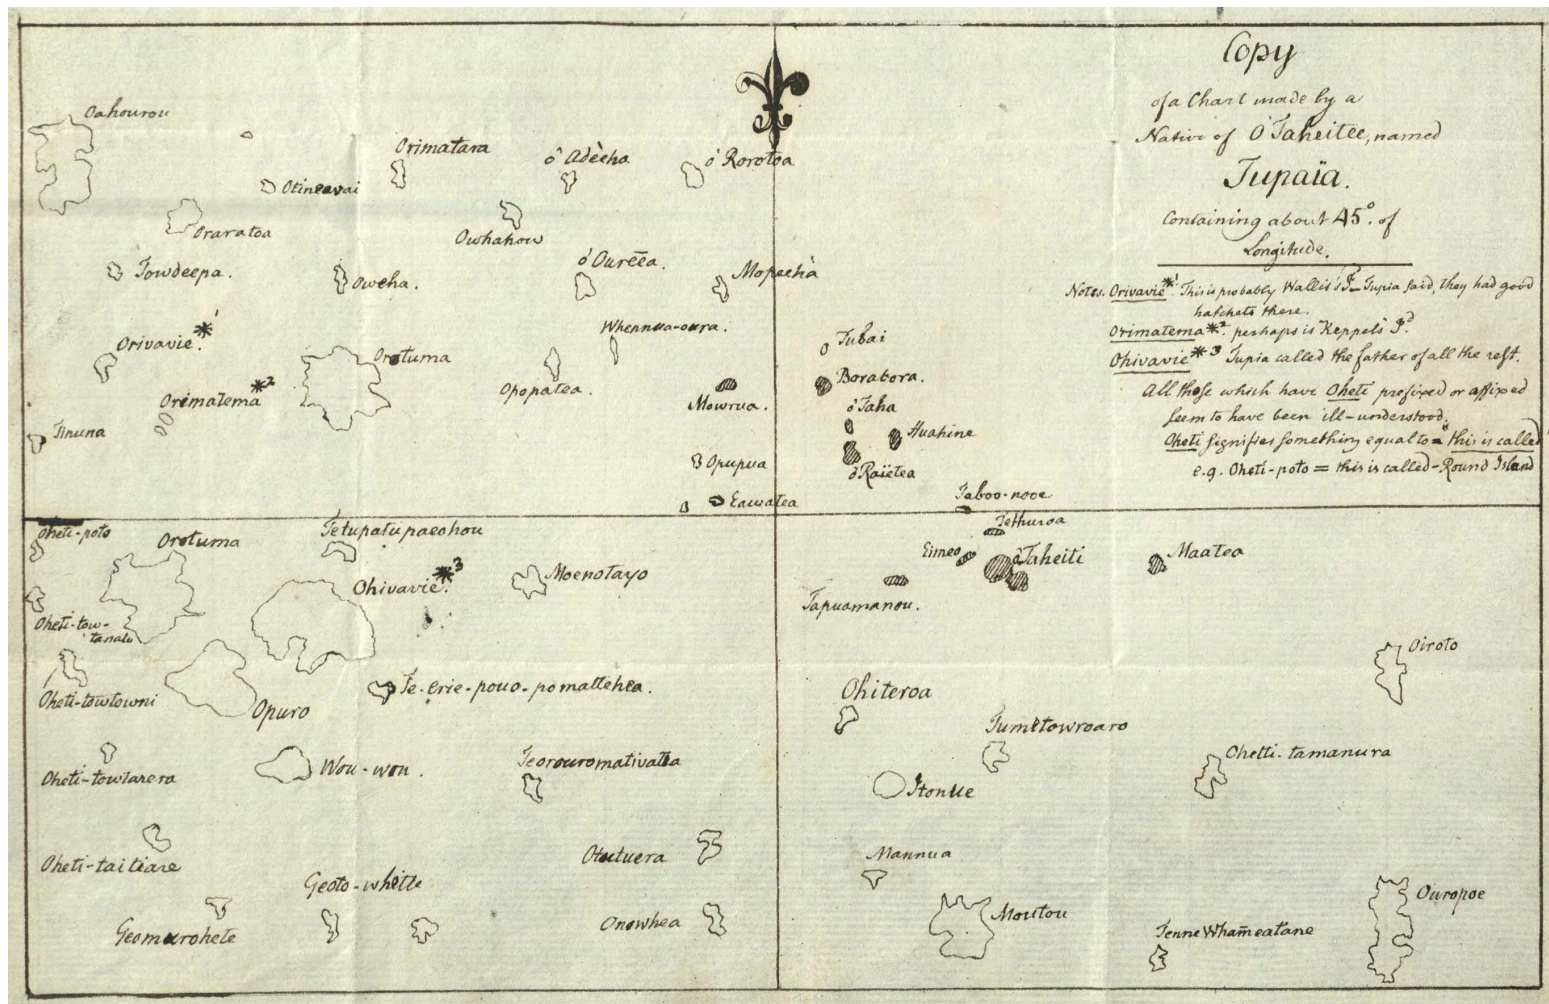 Copy
of a Chart made by a
Native of O'Taheitee, named
Tupaïa.
Containing about 45°. of
Longitude.
Notes. Orivavie*1. This is probably Wallis's Id_ Tupia said, they had good
hatchets there.
Orimatema*2. perhaps is Keppels Id.
Ohivavie*3 Tupia called the father of all the rest.
All those which have Oheti prefixed or affixed
seem to have been ill-understood.
Oheti signifies something equal to = "this is called"
e.g. Oheti-poto = this is called-Round Island
Oahourou
Orimatara
ó Adècha
ó Rorotoa
Otineavai
Oraratoa
Owhahow
Towdeepa.
Oweha.
ó Ourēēa.
Mopecha
Orivavie.*1
Orotuma
Whennua-oura.
Tubai
Orimatema*2
Opopatea.
Mowrua.
Borabora.
ó Taha
Tinuna
Huahine
Opupua
ó Raietea
Eawatea
Taboo-nooe
Oheti-poto
Orotuma
Tetupatupaeohou
Tethuroa
Eimeo
ó Taheiti
Maatea
Ohivavie.*3
Moenotayo
Tapuamanou.
Oheti-tow-
tanalu
Oiroto
Oheti-towtowni
Opuro
Te-erie-pouo-pomattehea.
Ohiteroa
Tumetowroaro
Oheti-towtarera
Wou-wou.
Teorouromativatea
Itonue
Ohetti-tamanura
Oheti-taitiare
Otutuera
Mannua
Geoto-white
Ouropoe
Geomarohete
Onowhea
Moutou
Tenne Wham̄eatane